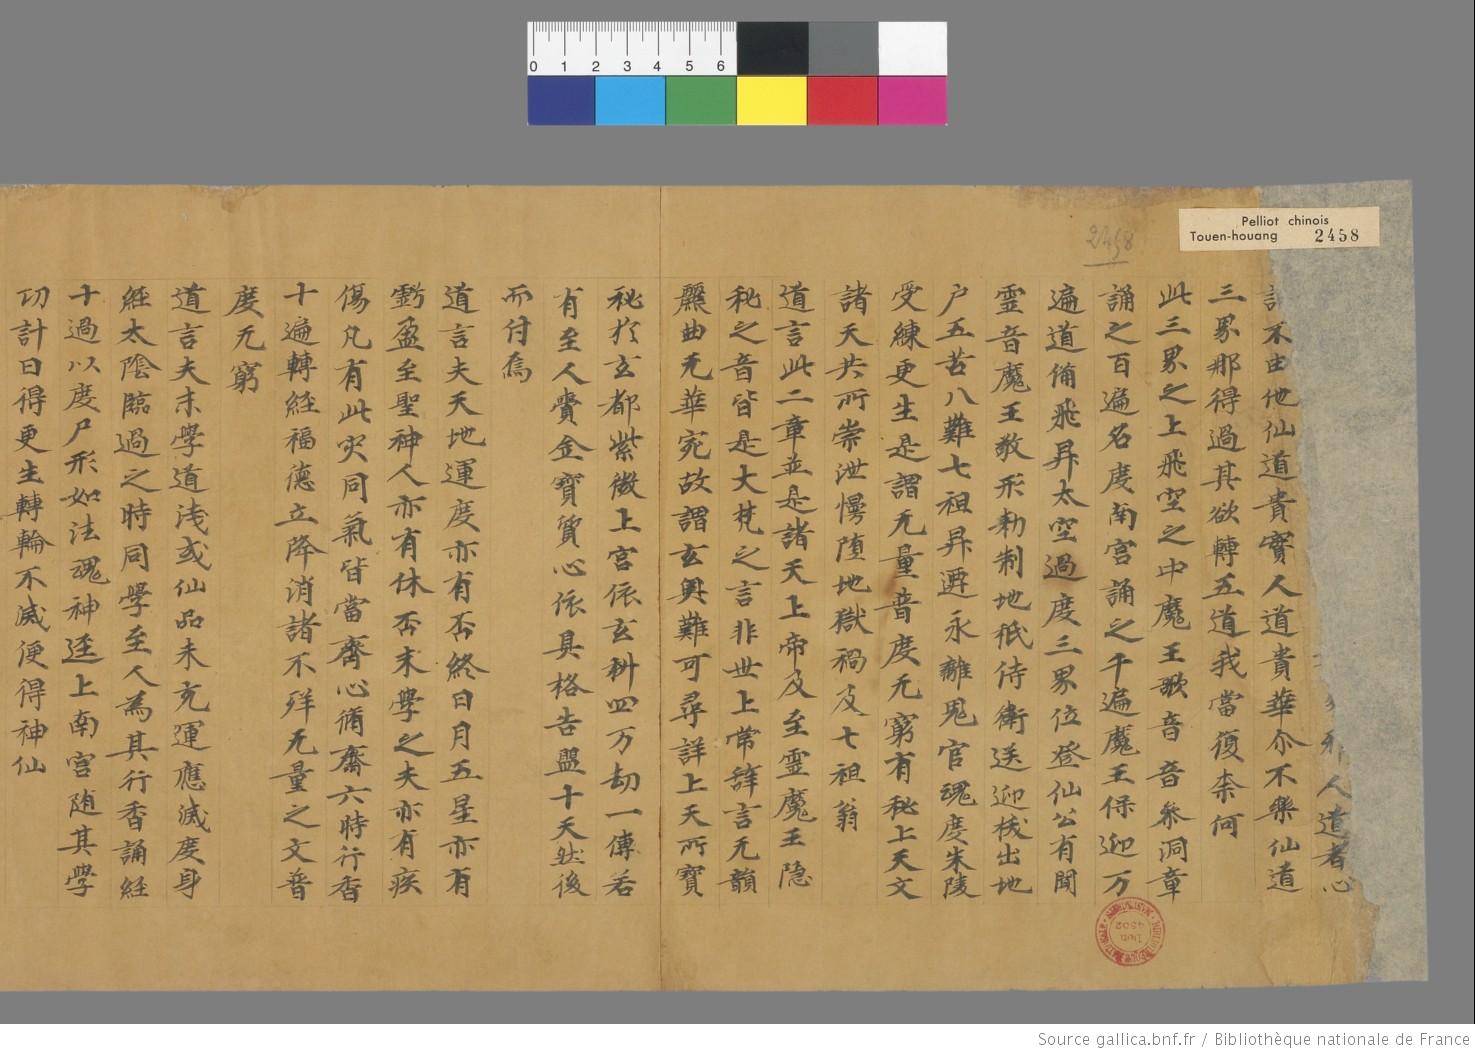 0 1 2 3 4 5 6
Pelliot chinois
Touen-houang 2458
2458
人道者心
不由他仙道貴實人道貴華尒不樂仙道
三界那得過其欲轉五道我當復柰何
此三界之上飛空之中魔王歌音音參洞章
誦之百遍名度南宮誦之千遍魔王保迎万
遍道俻飛昇太空過度三界位登仙公有聞
靈音魔王敬形勑制地祇侍衛送迎拔出地
户五苦八難七祖昇遷永離鬼官魂度朱陵
受練更生是謂无量普度无窮有秘上天文
諸天共所崇泄慢墮地獄禍及七祖翁
道言此二章並是諸天上帝及至靈魔王隠
秘之音皆是大梵之言非世上常辝言无韻
麗曲无華宛故謂玄奥難可尋詳上天所寶
秘於玄都紫微上宮依玄科四万劫一傳若
有至人賫金寶質心依具格告盟十天然後
而付焉
道言夫天地運度亦有否終日月五星亦有
虧盈至聖神人亦有休否末學之夫亦有疾
傷凡有此灾同氣皆當齋心脩齋六時行香
十遍轉經福德立降消諸不祥无量之文普
度无窮
道言夫末學道浅或仙品未充運應滅度身
經太陰臨過之時同學至人為其行香誦經
十過以度尸形如法魂神逕上南宮随其學
功計日得更生轉輪不滅便得神仙
Source gallica.bnf.fr / Bibliothèque nationale de France